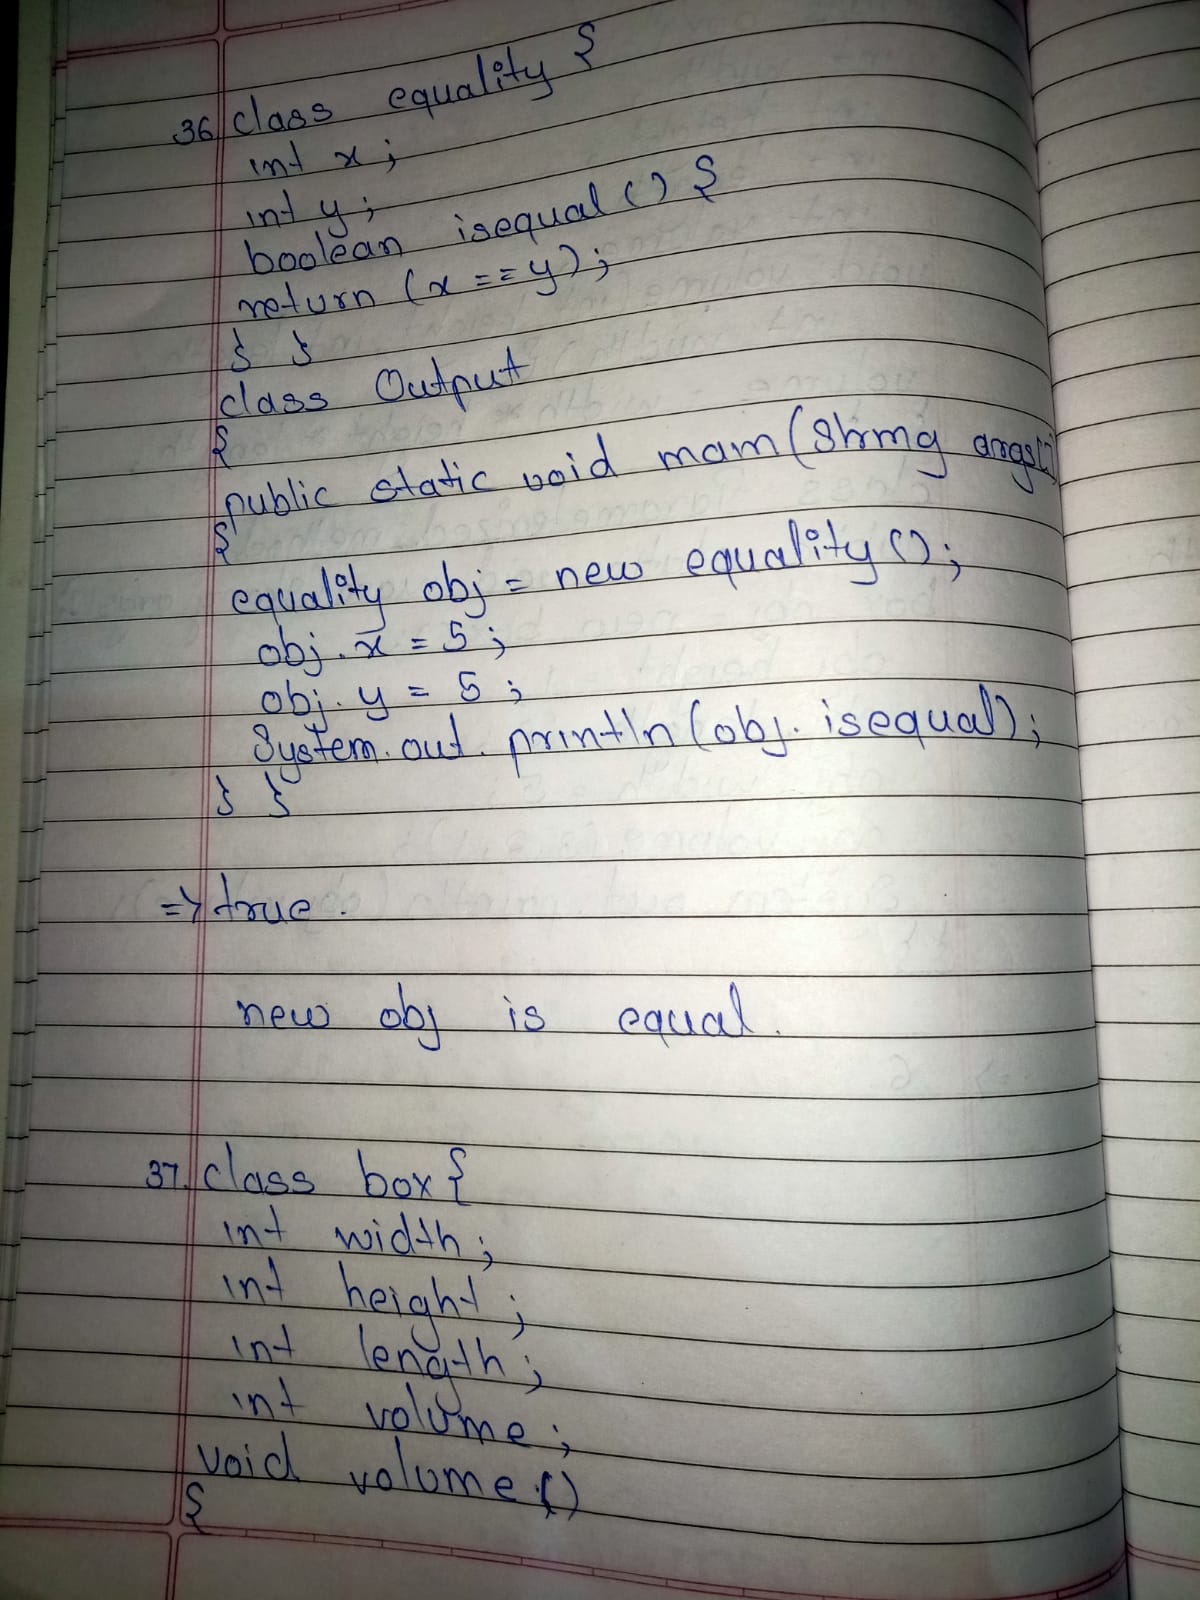 36. class equality {
int x;
int y;
boolean isequal () {
return (x == y);
} }
class Output
{
public static void main (String args[])
{
equality obj = new equality ();
obj. x = 5;
obj. y = 5;
System. out. println (obj. isequal);
} }
=> true.
new obj is equal.
37. class box {
int width;
int height;
int length;
int volume;
void volume ()
{